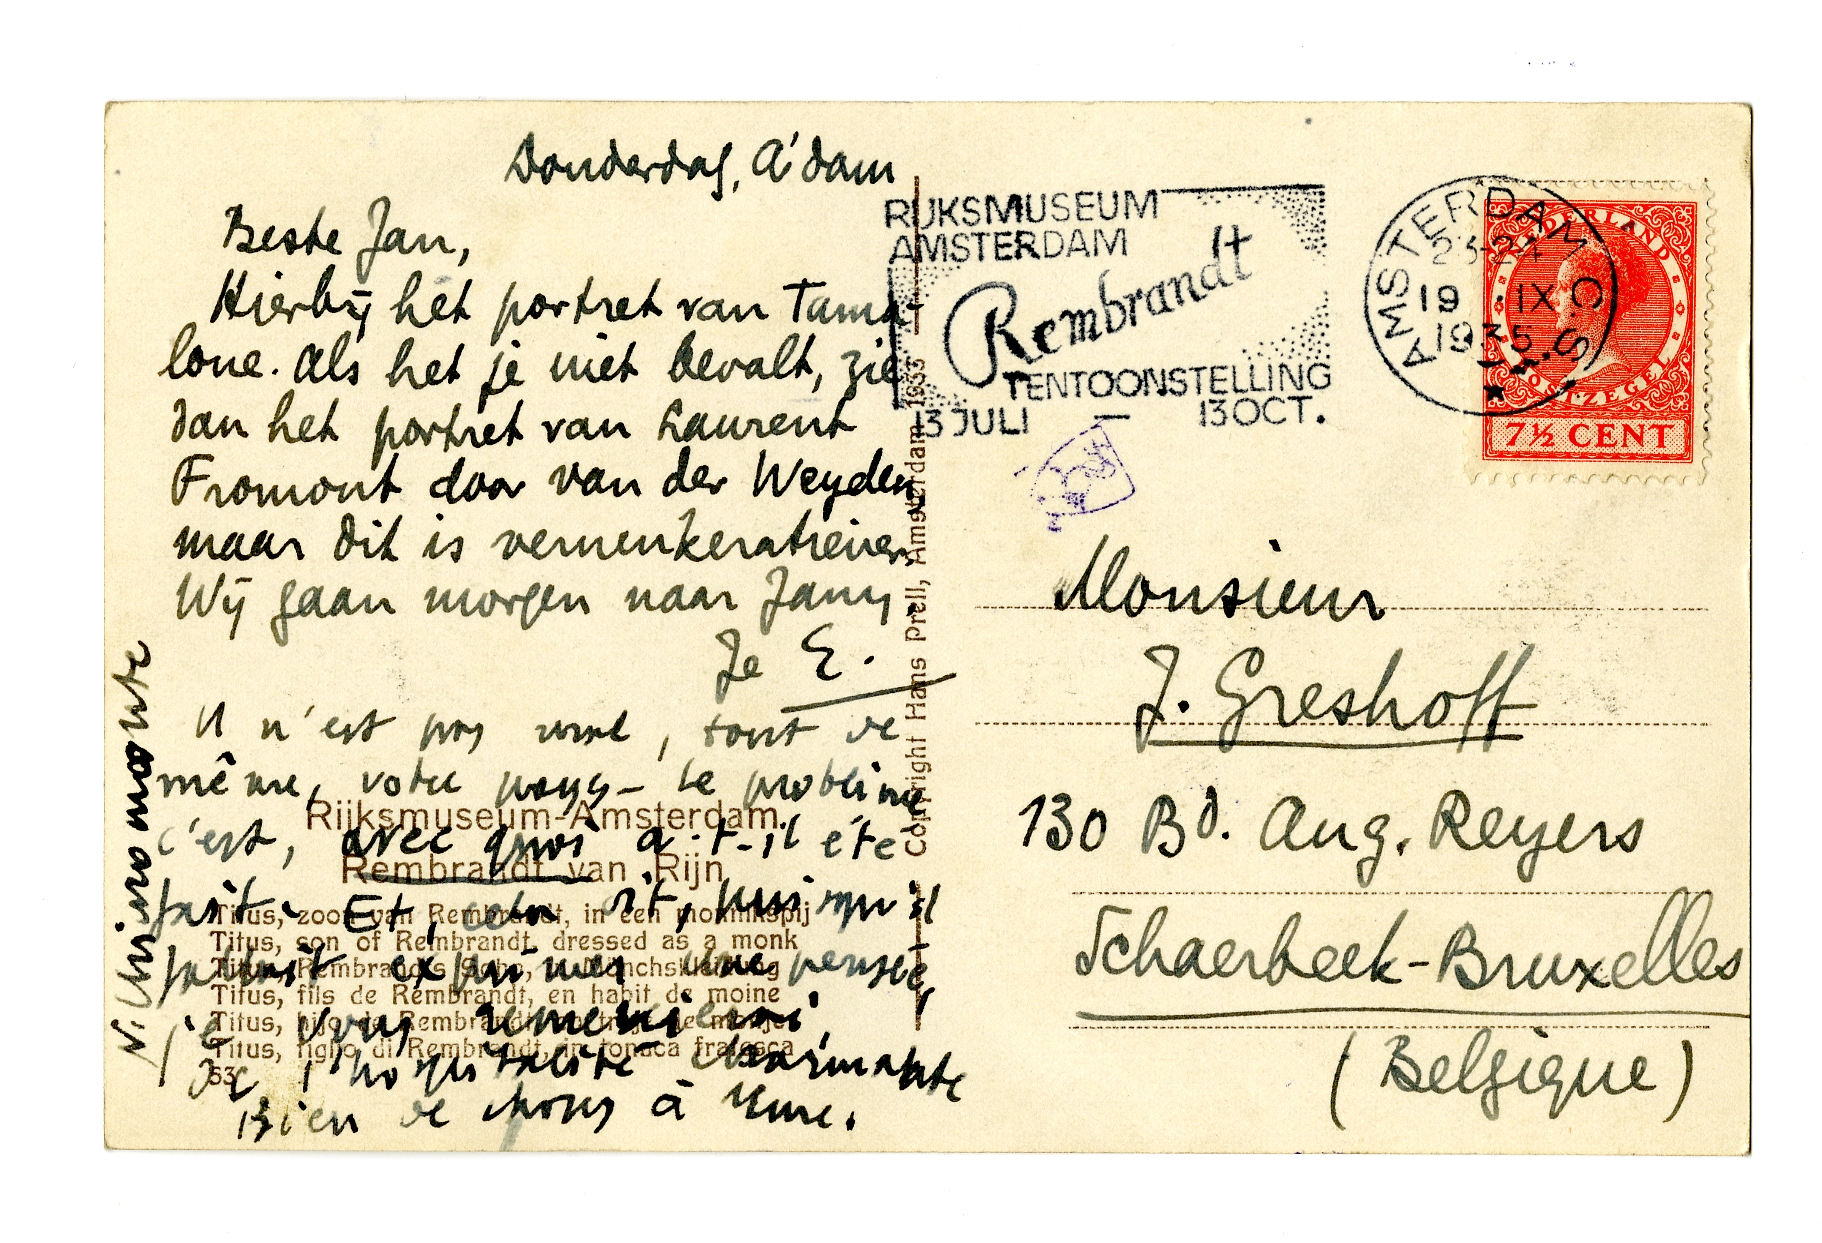 Donderdag, A'dam
Beste Jan,
Hierbij het portret van Tama-
lone. Als het je niet bevalt, zie
dan het portret van Laurent
Fromont door van der Weyden
maar dit is
Wij gaan morgen naar Jany
Je E.
Il n'est pas vrai, tout de
même, votre pays – le problème
c'est, avec quoi a-t-il été
fait. Et, cela dit, puisqu'il
exprimer une pensée,
je vous
de l'hospitalité charmante
Bien de choses à
Rijksmuseum-Amsterdam.
Rembrandt van Rijn
Titus, zoon van Rembrandt, in een monnikspij
Titus, son of Rembrandt, dressed as a monk
Titus, Rembrandts Sohn, in Mönchskleidung
Titus, fils de Rembrandt, en habit de moine
Titus, hijo de Rembrandt, en traje de monje
Titus, figlio di Rembrandt, in tonaca fratesca
53
Copyright Hans Prell, Amsterdam 1933
RIJKSMUSEUM
AMSTERDAM
Rembrandt
TENTOONSTELLING
13 JULI – 13 OCT.
AMSTERDAM C.S.
23-24
19 IX
1935
NEDERLAND
POSTZEGEL
7½ CENT
Monsieur
J. Greshoff
130 Bd. Aug. Reyers
Schaerbeek-Bruxelles
(Belgique)